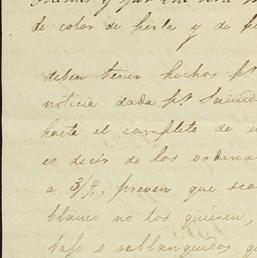 de color de perla y de
deben tener hechos pa
noticia dada pr
hasta el completo de
es decir de los ordina
a 3/8, preven que sea
blanco no los quieren,
bajo o reblanquidos q